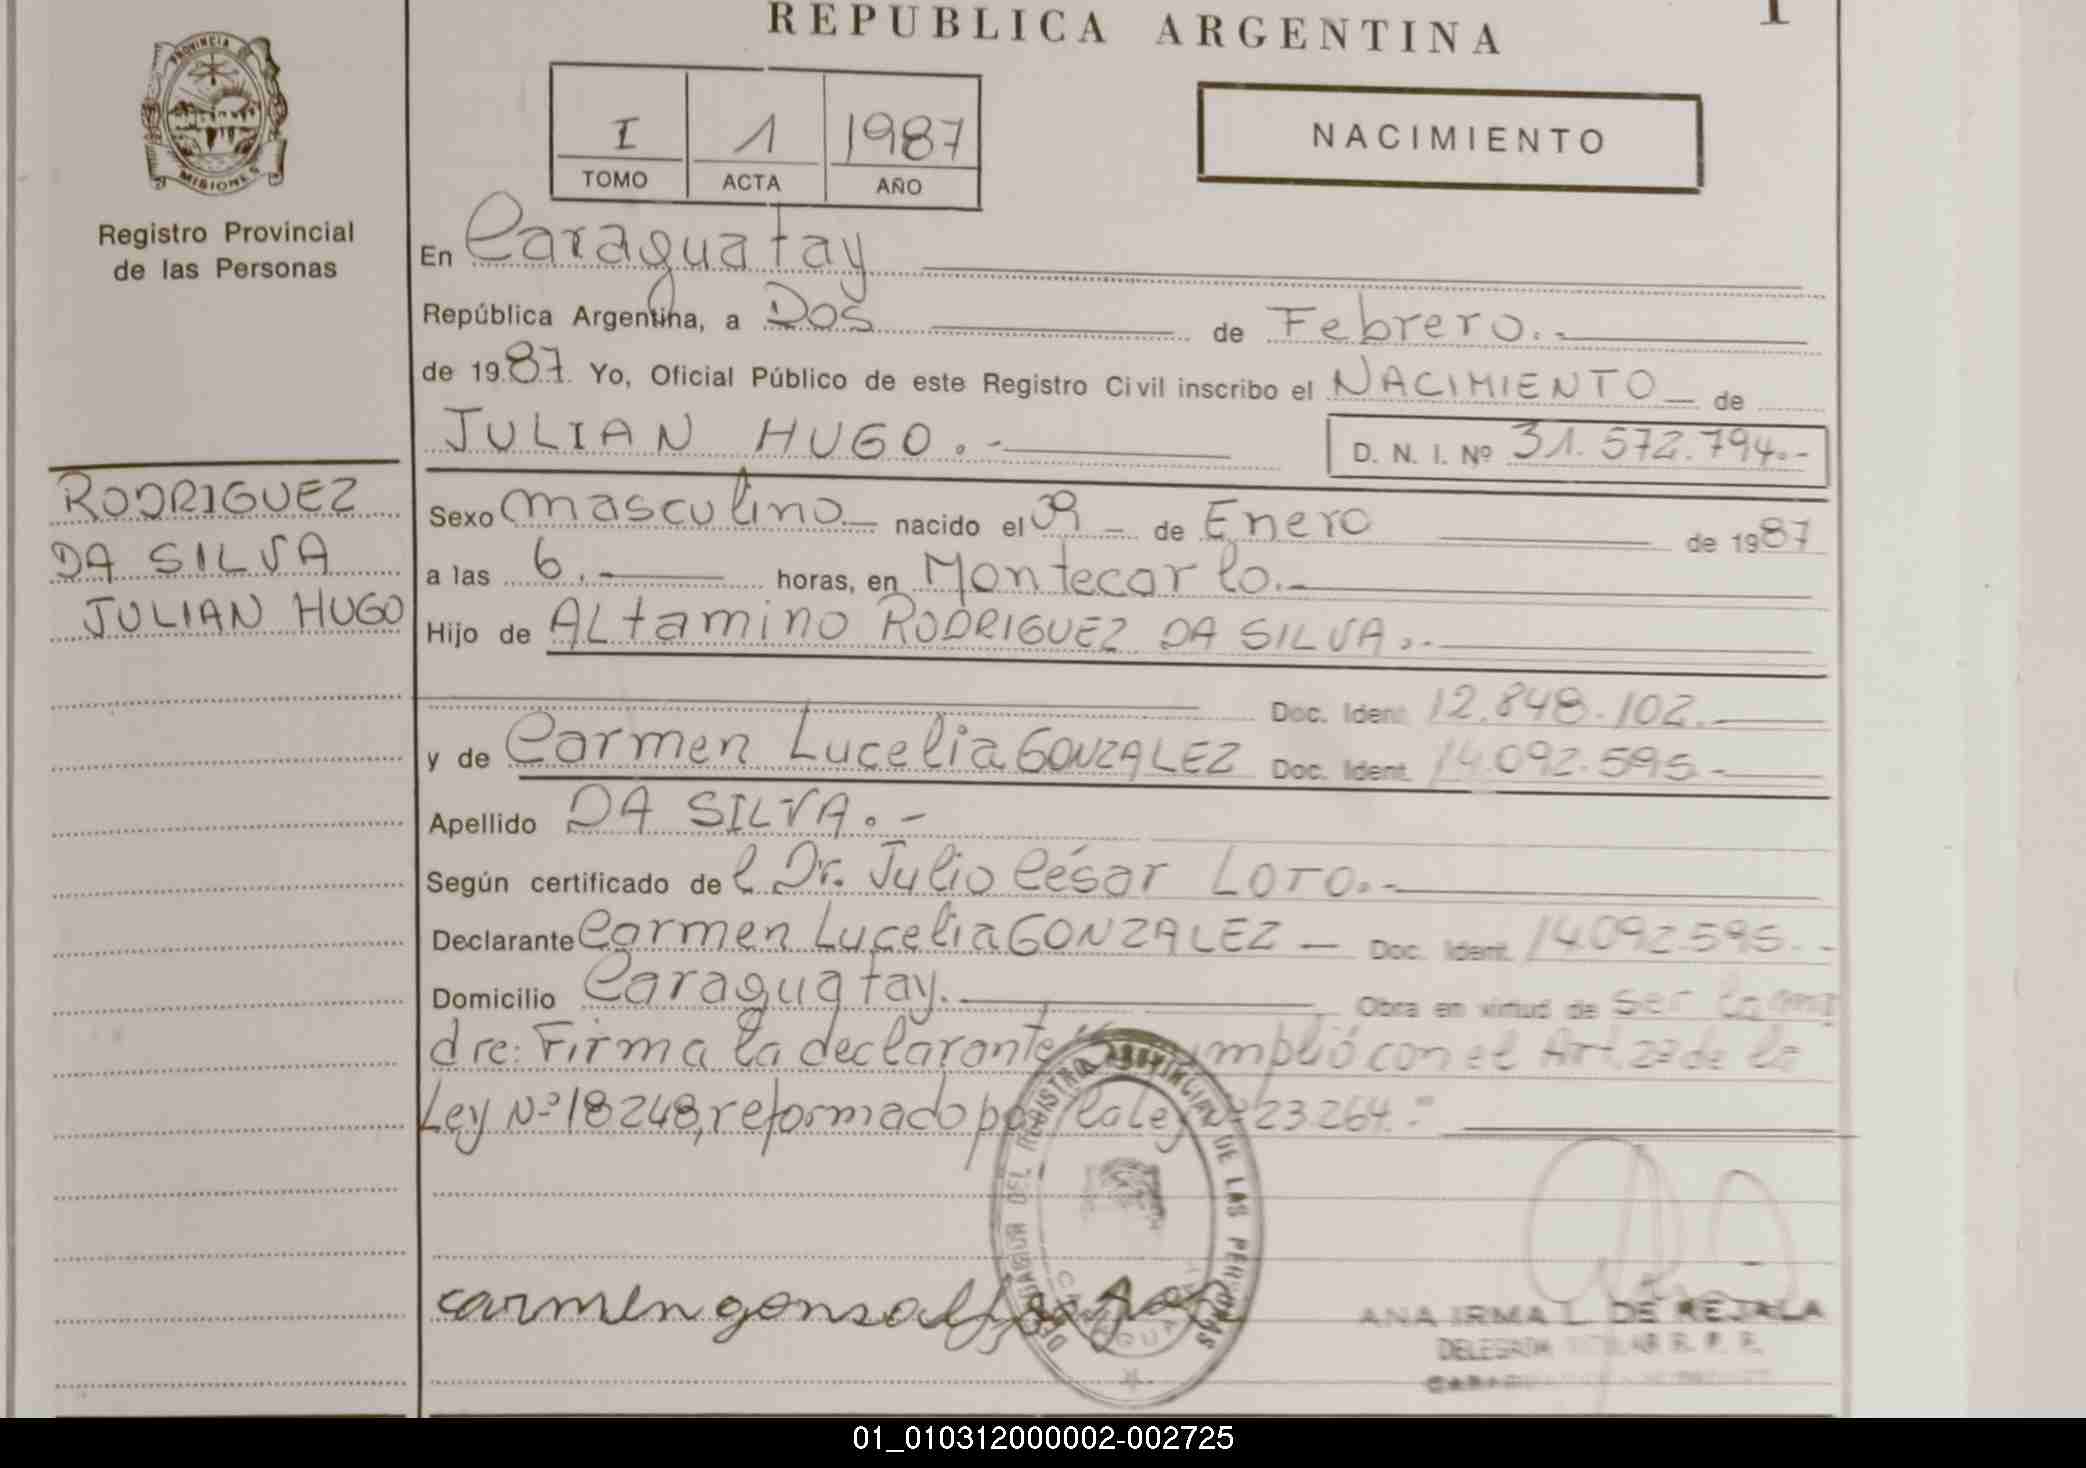 REPUBLICA ARGENTINA
1
PROVINCIA
MISIONES
Registro Provincial
de las Personas
I 1 1987
TOMO ACTA AÑO
NACIMIENTO
En Caraguatay
República Argentina, a Dos de Febrero.-
de 1987. Yo, Oficial Público de este Registro Civil inscribo el NACIMIENTO de
JULIAN HUGO.- D. N. I. Nº 31.572.794.-
RODRIGUEZ
DA SILVA
JULIAN HUGO
Sexo masculino nacido el 09 de Enero de 1987
a las 6.- horas, en Montecarlo.-
Hijo de ALtamino RODRIGUEZ DA SILVA.-
Doc. Ident. 12.848.102.-
y de Carmen Lucelia GONZALEZ Doc. Ident. 14.092.595.-
Apellido DA SILVA.-
Según certificado del Dr. Julio César LOTO.-
Declarante Carmen Lucelia GONZALEZ - Doc. Ident. 14.092.595.-
Domicilio Caraguatay. Obra en virtud de ser la ma
dre: Firma la declarante con el Art. 2º de la
Ley Nº 18248, reformado por la Ley Nº 23.264.-
DEL REGISTRO PROVINCIAL DE LAS PERSONAS
carmen
ANA IRMA L. DE REJALA
DELEGADA R. P. P.
01_010312000002-002725